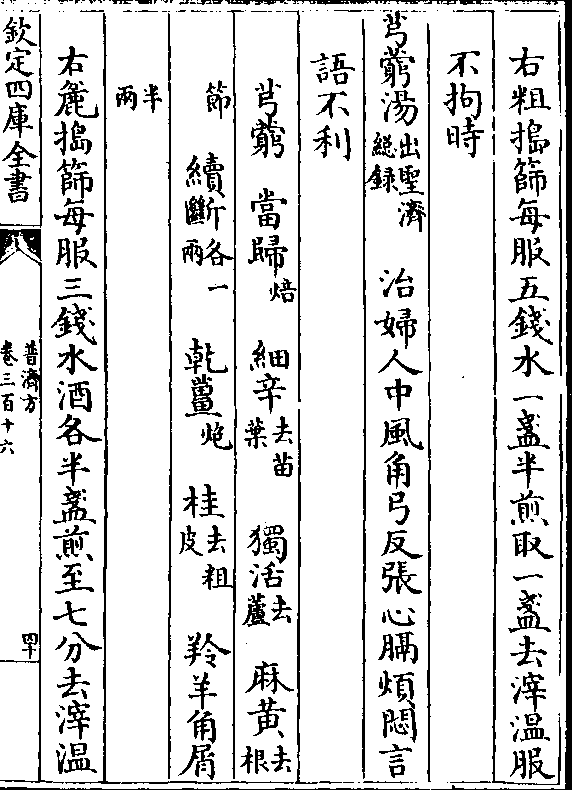 右粗搗篩每服五錢水一盞半煎取一盞去滓温服
不拘時
芎藭湯出聖濟總録　治婦人中風角弓反張心膈煩悶言
語不利
芎藭　當歸焙　細辛去苗葉　獨活去蘆　麻黄去根
節　續斷各一兩　乾薑炮　桂去粗皮　羚羊角屑
半兩
右麄搗篩每服三錢水酒各半盞煎至七分去滓温
欽定四庫全書
普濟方
卷三百十六
四十